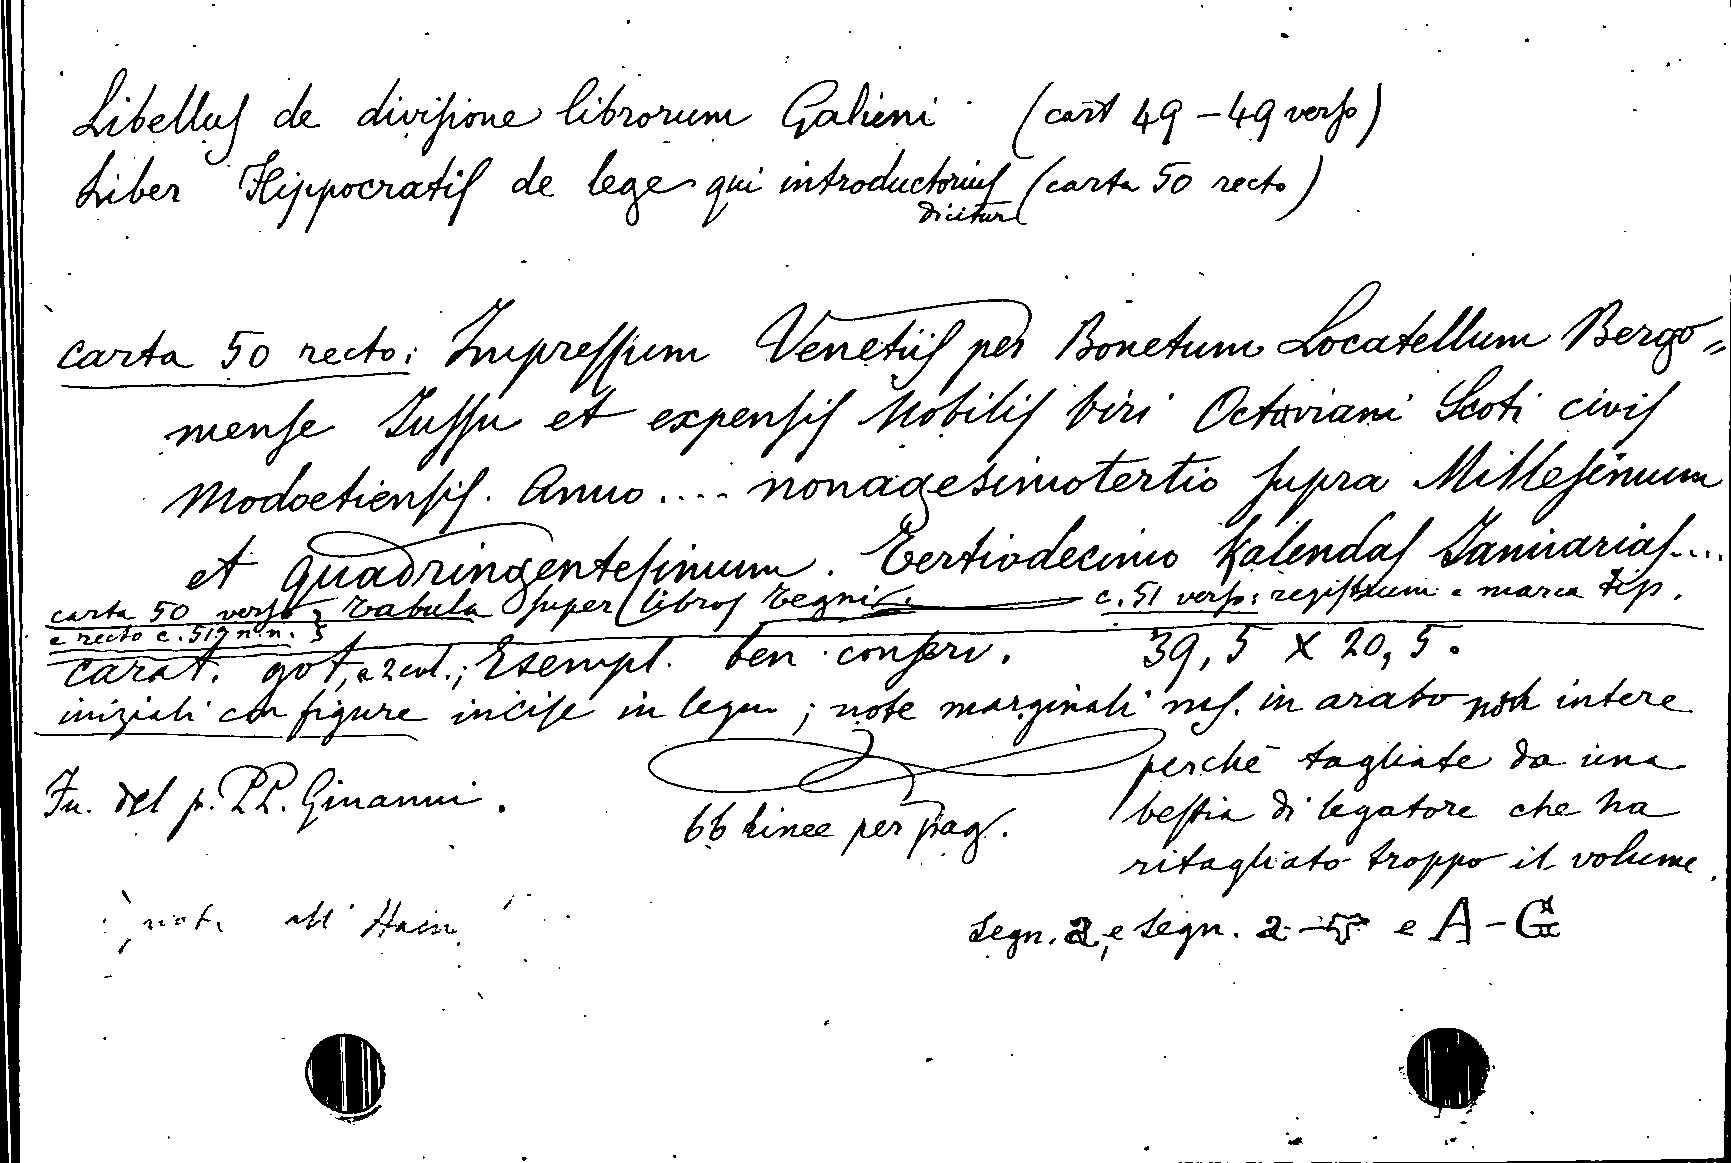 Libelluſ de diviſione librorum Galieni (cart 49 – 49 verſo)
Liber Hippocratiſ de lege qui introductoriuſ (carta 50 recto)
dicitur
carta 50 recto: Impreſſum Venetiiſ per Bonetum Locatellum Bergo=
menſe Juſſu et expenſiſ Nobiliſ Viri Octaviani Scoti civiſ
Modoetienſiſ. Anno .... nonagesimotertio ſupra Milleſimum
et quadringenteſimum. Tertiodecimo Kalendaſ Januariaſ....
carta 50 verſo } Tabula ſuper libroſ Tegni. c. 51 verſo: regiſtrum e marca tip.
e recto c. 51 n.n. }
carat. got, a 2 col.; Esempl. ben conſerv. 39,5 X 20,5.
iniziali con figure inciſe in legno; note marginali mſ. in arabo non intere
perchè tagliate da una
beſtia di legatore che ha
ritagliato troppo il volume.
Fu. del p. P.P. Ginanni.
66 linee per pag.
, not. all' Hain
segn. a, e segn. a - e A – G